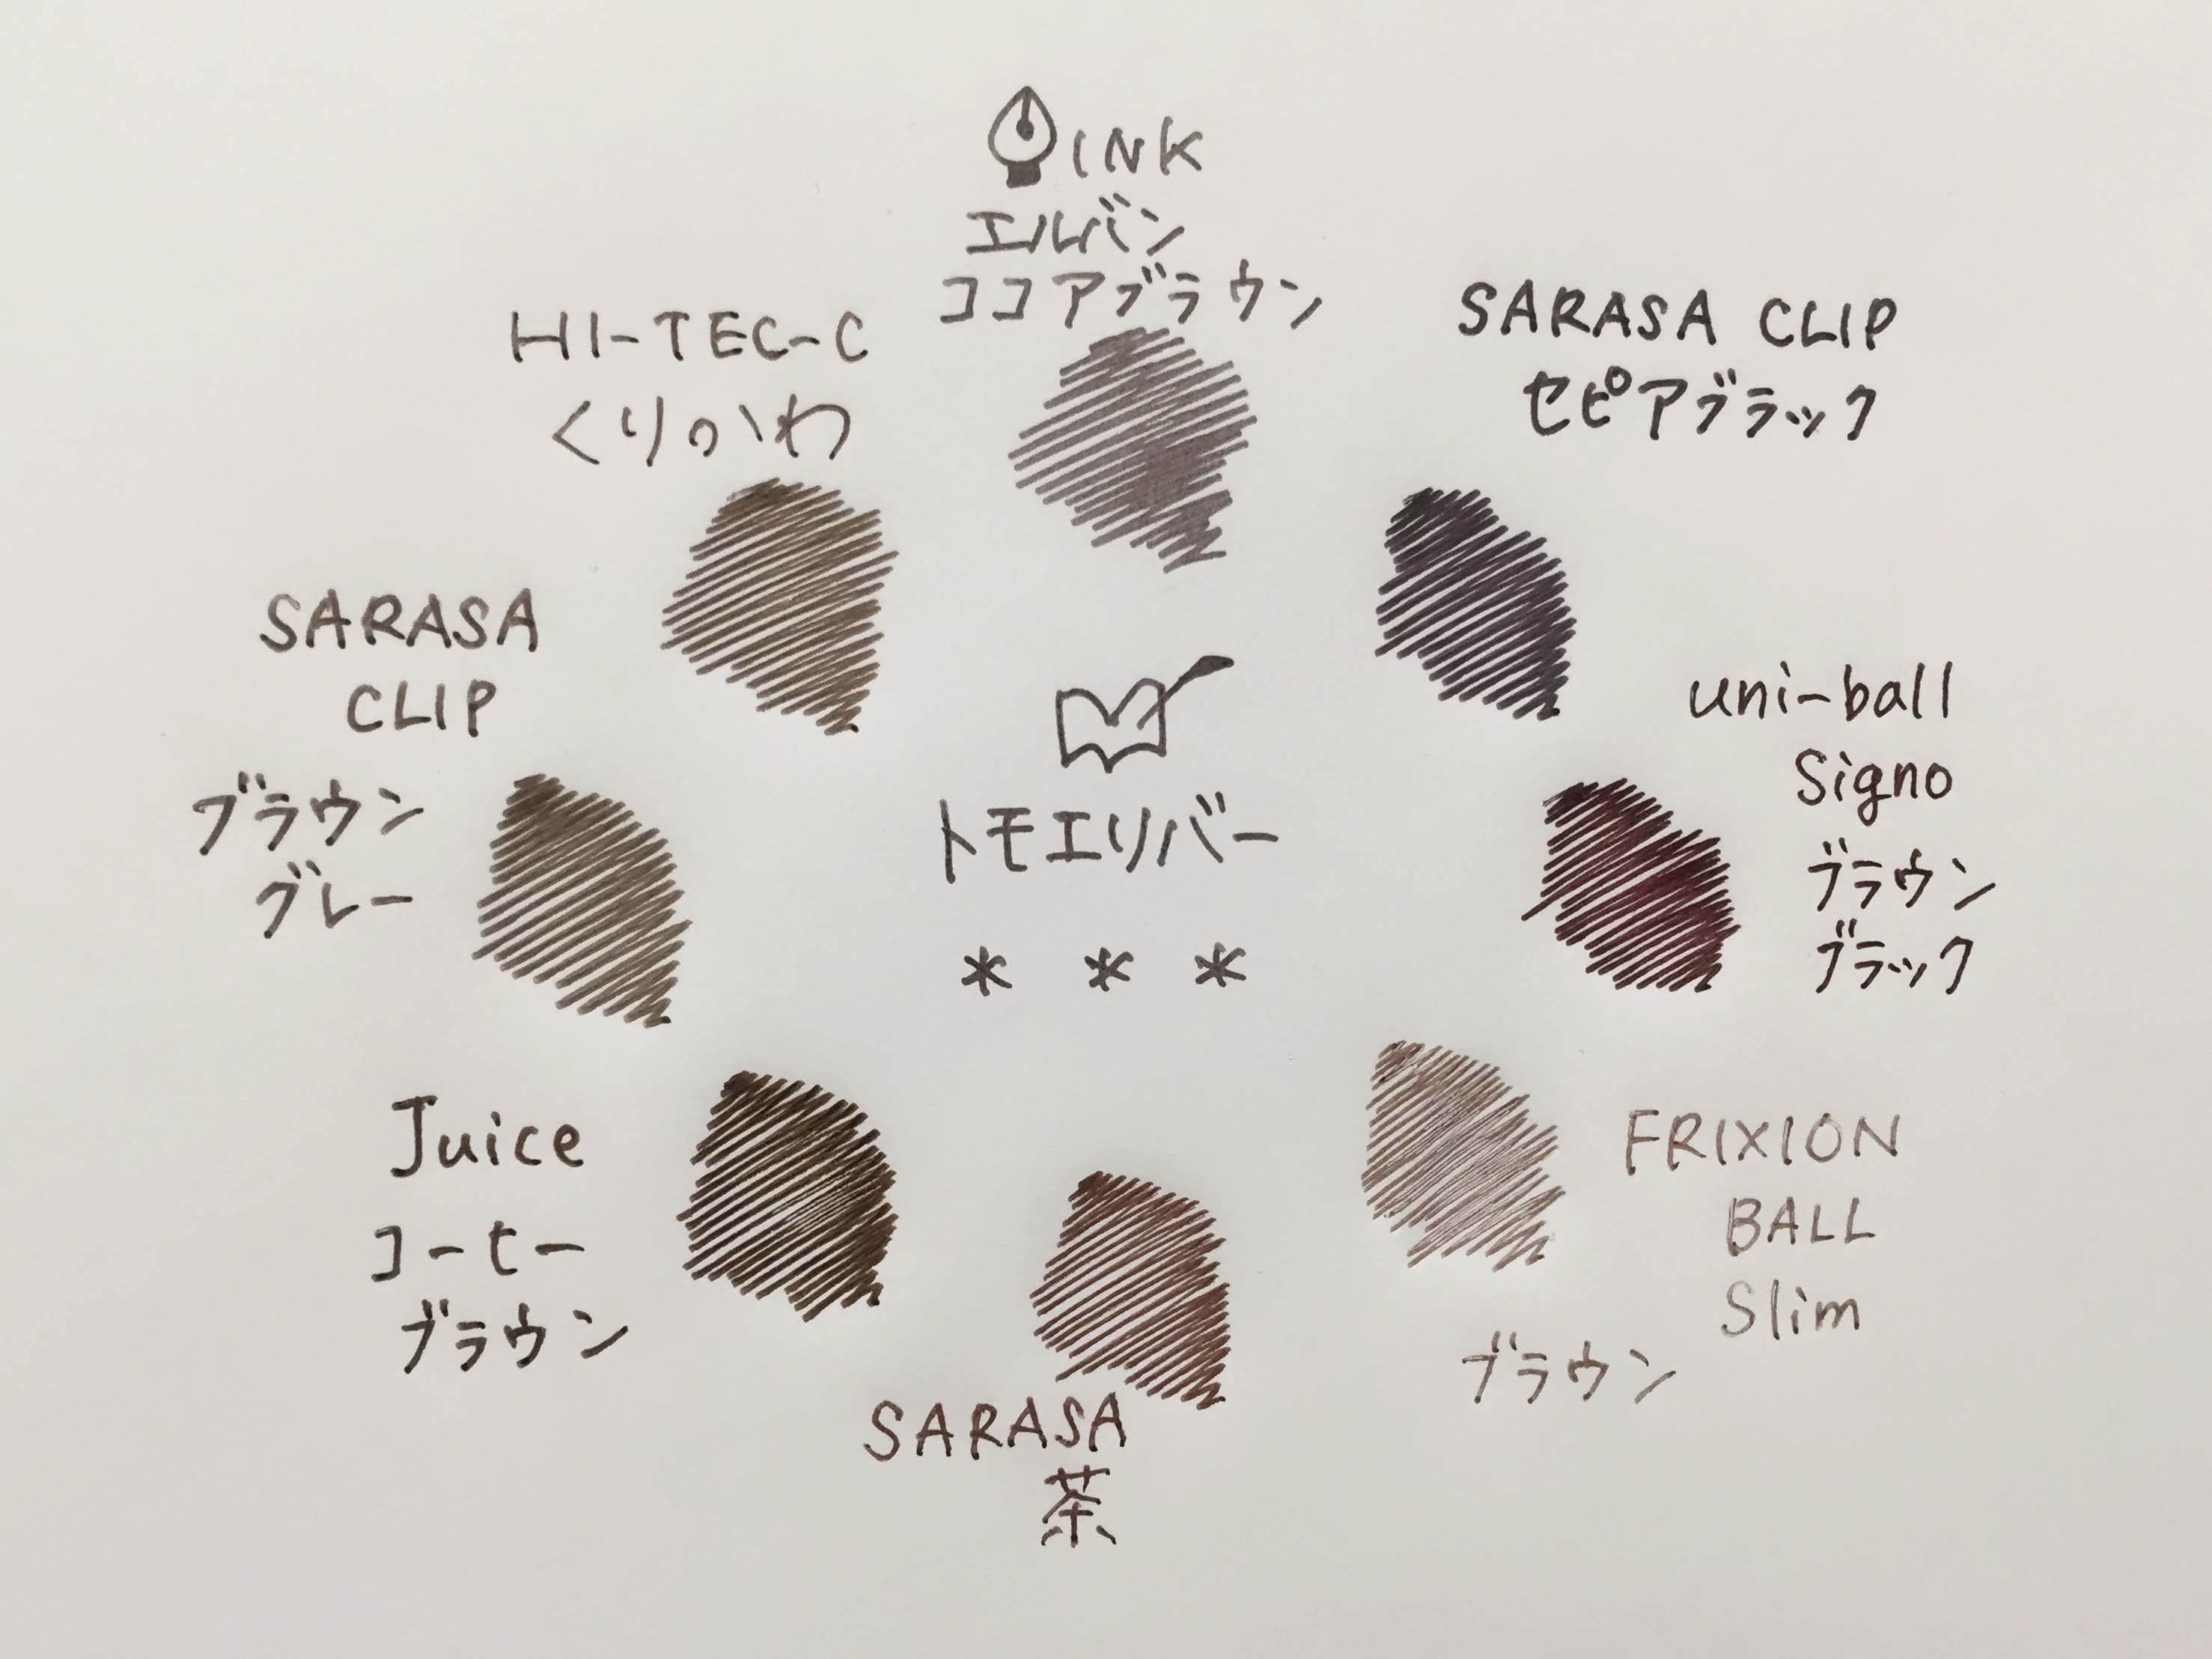 INK
エルバン
ココアブラウン
SARASA CLIP
セピアブラック
uni-ball
Signo
ブラウン
ブラック
FRIXION
BALL
Slim
ブラウン
SARASA
茶
Juice
コーヒー
ブラウン
SARASA
CLIP
ブラウン
グレー
HI-TEC-C
くりかわ
トモエリバー
* * *